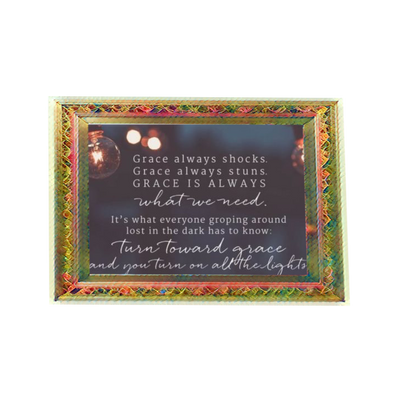 Grace always shocks.
Grace always stuns.
GRACE IS ALWAYS
what we need.
It's what everyone groping around
lost in the dark has to know:
turn toward grace
and you turn on all the lights